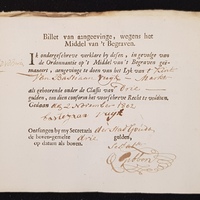 Billet van aangeevinge, wegens het
Middel van 't Begraven.
Ik ondergeschreve verklare by desen, in gevolge van
de Ordonnantie op 't Middel van 't Begraven geë-
maneert, aengevinge te doen van het Lyk van 't kint
Van Bastiaan Vuyk
als gehoorende onder de Classis van Drie
gulden, om dien conform het voorschreve Recht te voldoen.
Actum den 2 November
Bastiaan Vuyk
Ontfangen by my Secretaris der
de boven-gemelte drie gulden,
op datum als boven.